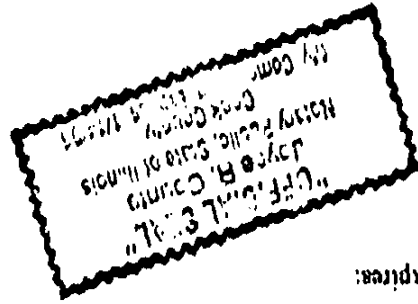 "OFFICIAL SEAL"
Joyce A. Counts
Notary Public, State of Illinois
Cook County
My
xpires: